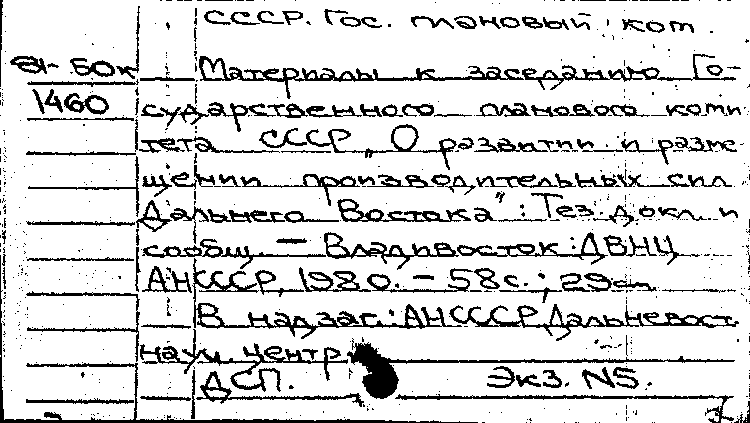 СССР. Гос. плановый ком.
81-50к Материалы к заседанию Го-
1460 сударственного планового коми
тета СССР „О развитии и разме
щении производительных сил
Дальнего Востока": Тез. докл. и
сообщ. — Владивосток: ДВНЦ
АНСССР, 1980. - 58с.; 29см
В надзаг.: АНСССР, Дальневост.
науч. центр.
ДСП. Экз. N5.